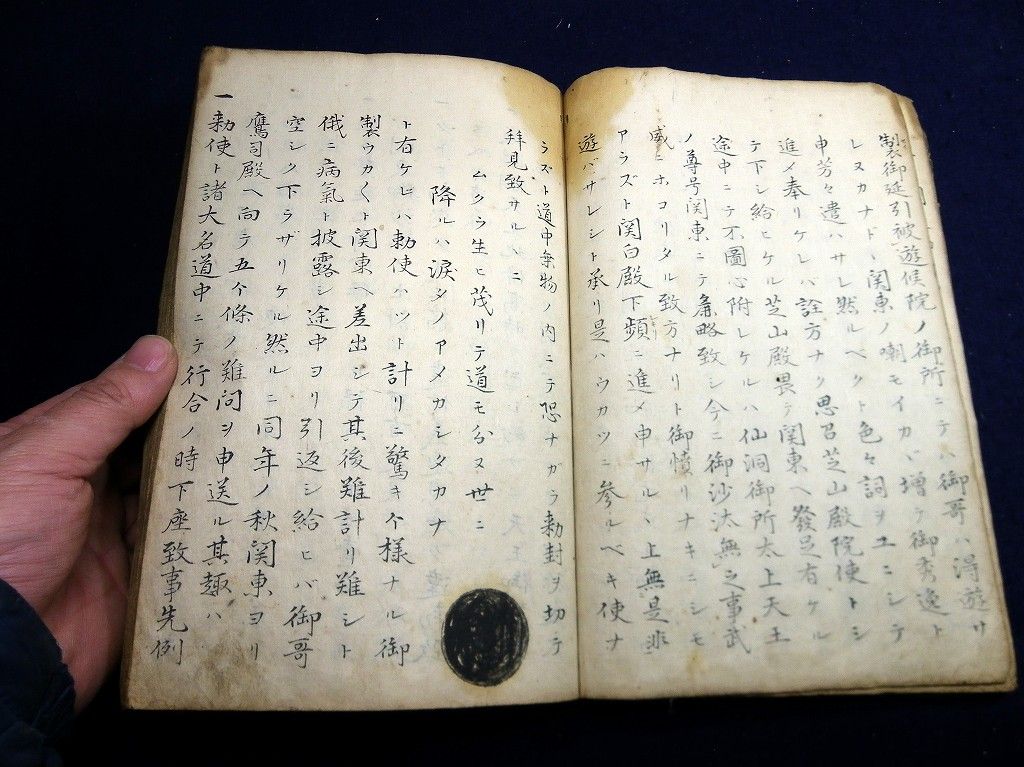 製御延引被遊候院ノ御所ニテハ御哥ハ得遊サ
レヌカナドヽ関東ノ嘲モイカバ増テ御秀逸ト
申芳々遣ハサレ然ルベクト色々詞ヲユニシテ
進メ奉リケレバ詮方ナク思召芝山殿院使トシ
テ下シ給ヒケル芝山殿畏テ関東ヘ發足有ケル
途中ニテ不圖心附レケルハ仙洞御所太上天王
ノ尊号関東ニテ麁略致シ今ニ御沙汰無之事武
威ニホコリタル致方ナリト御憤リナキニシモ
アラズト関白殿下頻ニ進メ申サルヽ上無是非
遊バサレシト承リ是ハウカツニ参ルベキ使ナ
ラズト道中棄物ノ内ニテ恐ナガラ勅封ヲ切テ
拜見致サルヽニ
ムクラ生ヒ茂リテ道モ分ヌ世ニ
降ルハ涙タノアメカシタカナ
ト有ケレハ勅使ハツト計リニ驚キ个様ナル御
製ウカ〳〵ト関東ヘ差出シテ其後難計リ難シト
俄ニ病氣ト披露シ途中ヨリ引返シ給ヒバ御哥
空シク下ラザリケル然ルニ同年ノ秋関東ヨリ
鷹司殿ヘ向テ五个條ノ難問ヲ申送ル其趣ハ
一 勅使ト諸大名道中ニテ行合ノ時下座致事先例